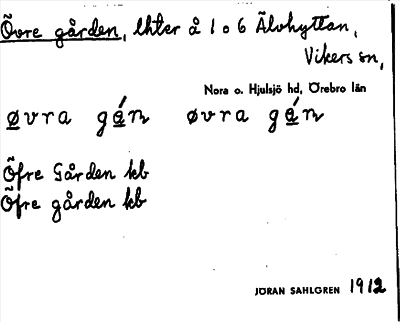 Övre gården, lhter å 1 o 6 Älvhyttan,
Vikers sn,
Nora o. Hjulsjö hd, Örebro län
øvra gá̱n øvra gá̱n
Öfre Gården kb
Öfre gården kb
JÖRAN SAHLGREN 1912